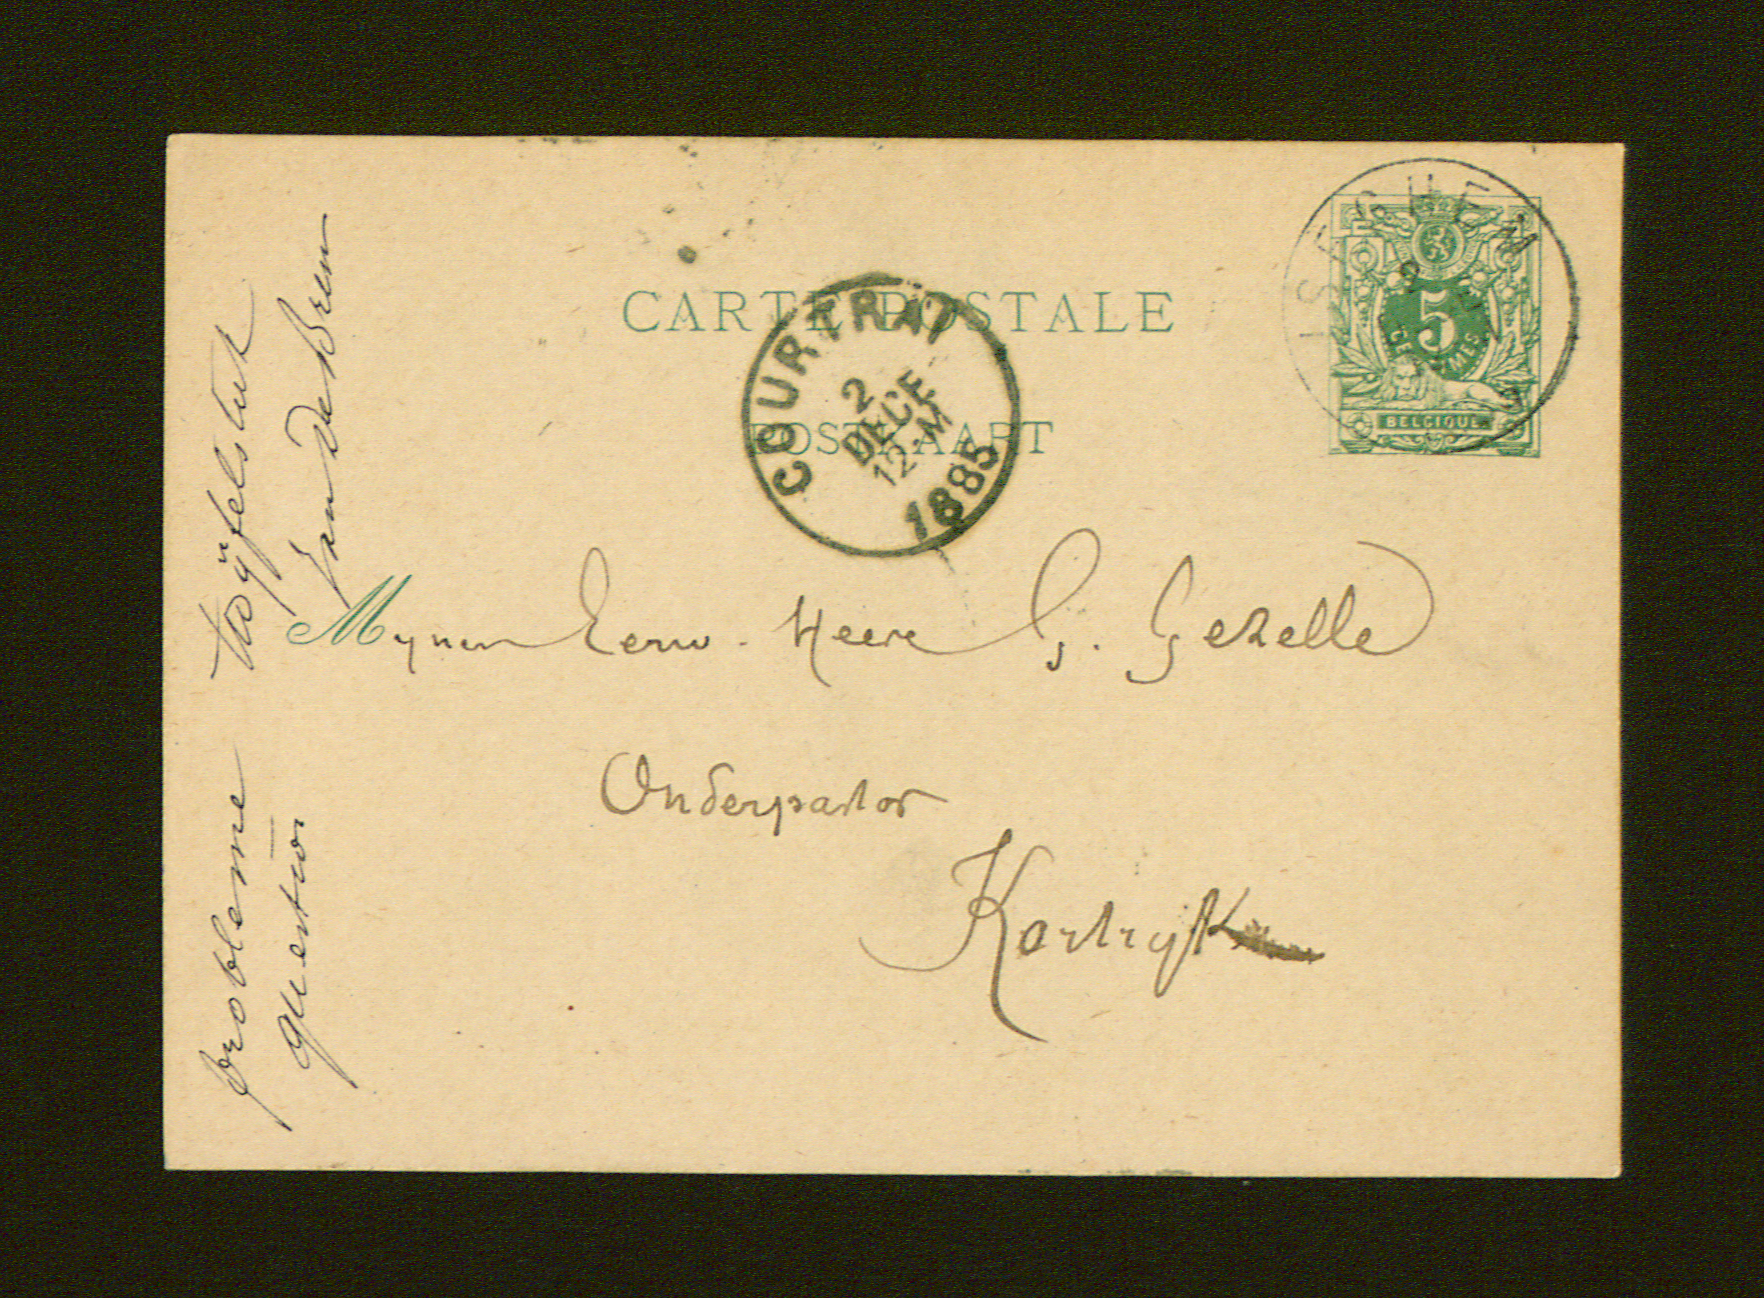 CARTE POSTALE
POSTKAART
COURTRAI
2
DECE
12-M
1885
ISEGHEM
5
CENTIMES
BELGIQUE
Mynen Eerw. Heere G. Gezelle
Onderpastor
Kortryk
probleme twÿfelstuk
question Van De Bren